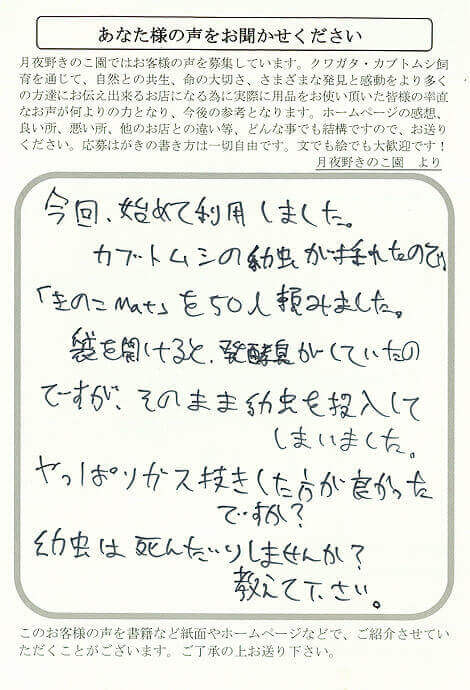 あなた様の声をお聞かせください
月夜野きのこ園ではお客様の声を募集しています。クワガタ・カブトムシ飼
育を通じて、自然との共生、命の大切さ、さまざまな発見と感動をより多く
の方達にお伝え出来るお店になる為に実際に用品をお使い頂いた皆様の率直
なお声が何よりの力となり、今後の参考となります。ホームページの感想、
良い所、悪い所、他のお店との違い等、どんな事でも結構ですので、お送り
ください。応募はがきの書き方は一切自由です。文でも絵でも大歓迎です！
月夜野きのこ園　より
今回、始めて利用しました。
カブトムシの幼虫が採れたので、
「きのこMat」を50L頼みました。
袋を開けると、発酵臭がしていたの
ですが、そのまま幼虫を投入して
しまいました。
やっぱりガス抜きした方が良かった
ですか？
幼虫は死んだりしませんか？
教えて下さい。
このお客様の声を書籍など紙面やホームページなどで、ご紹介させてい
ただくことがございます。ご了承の上お送り下さい。